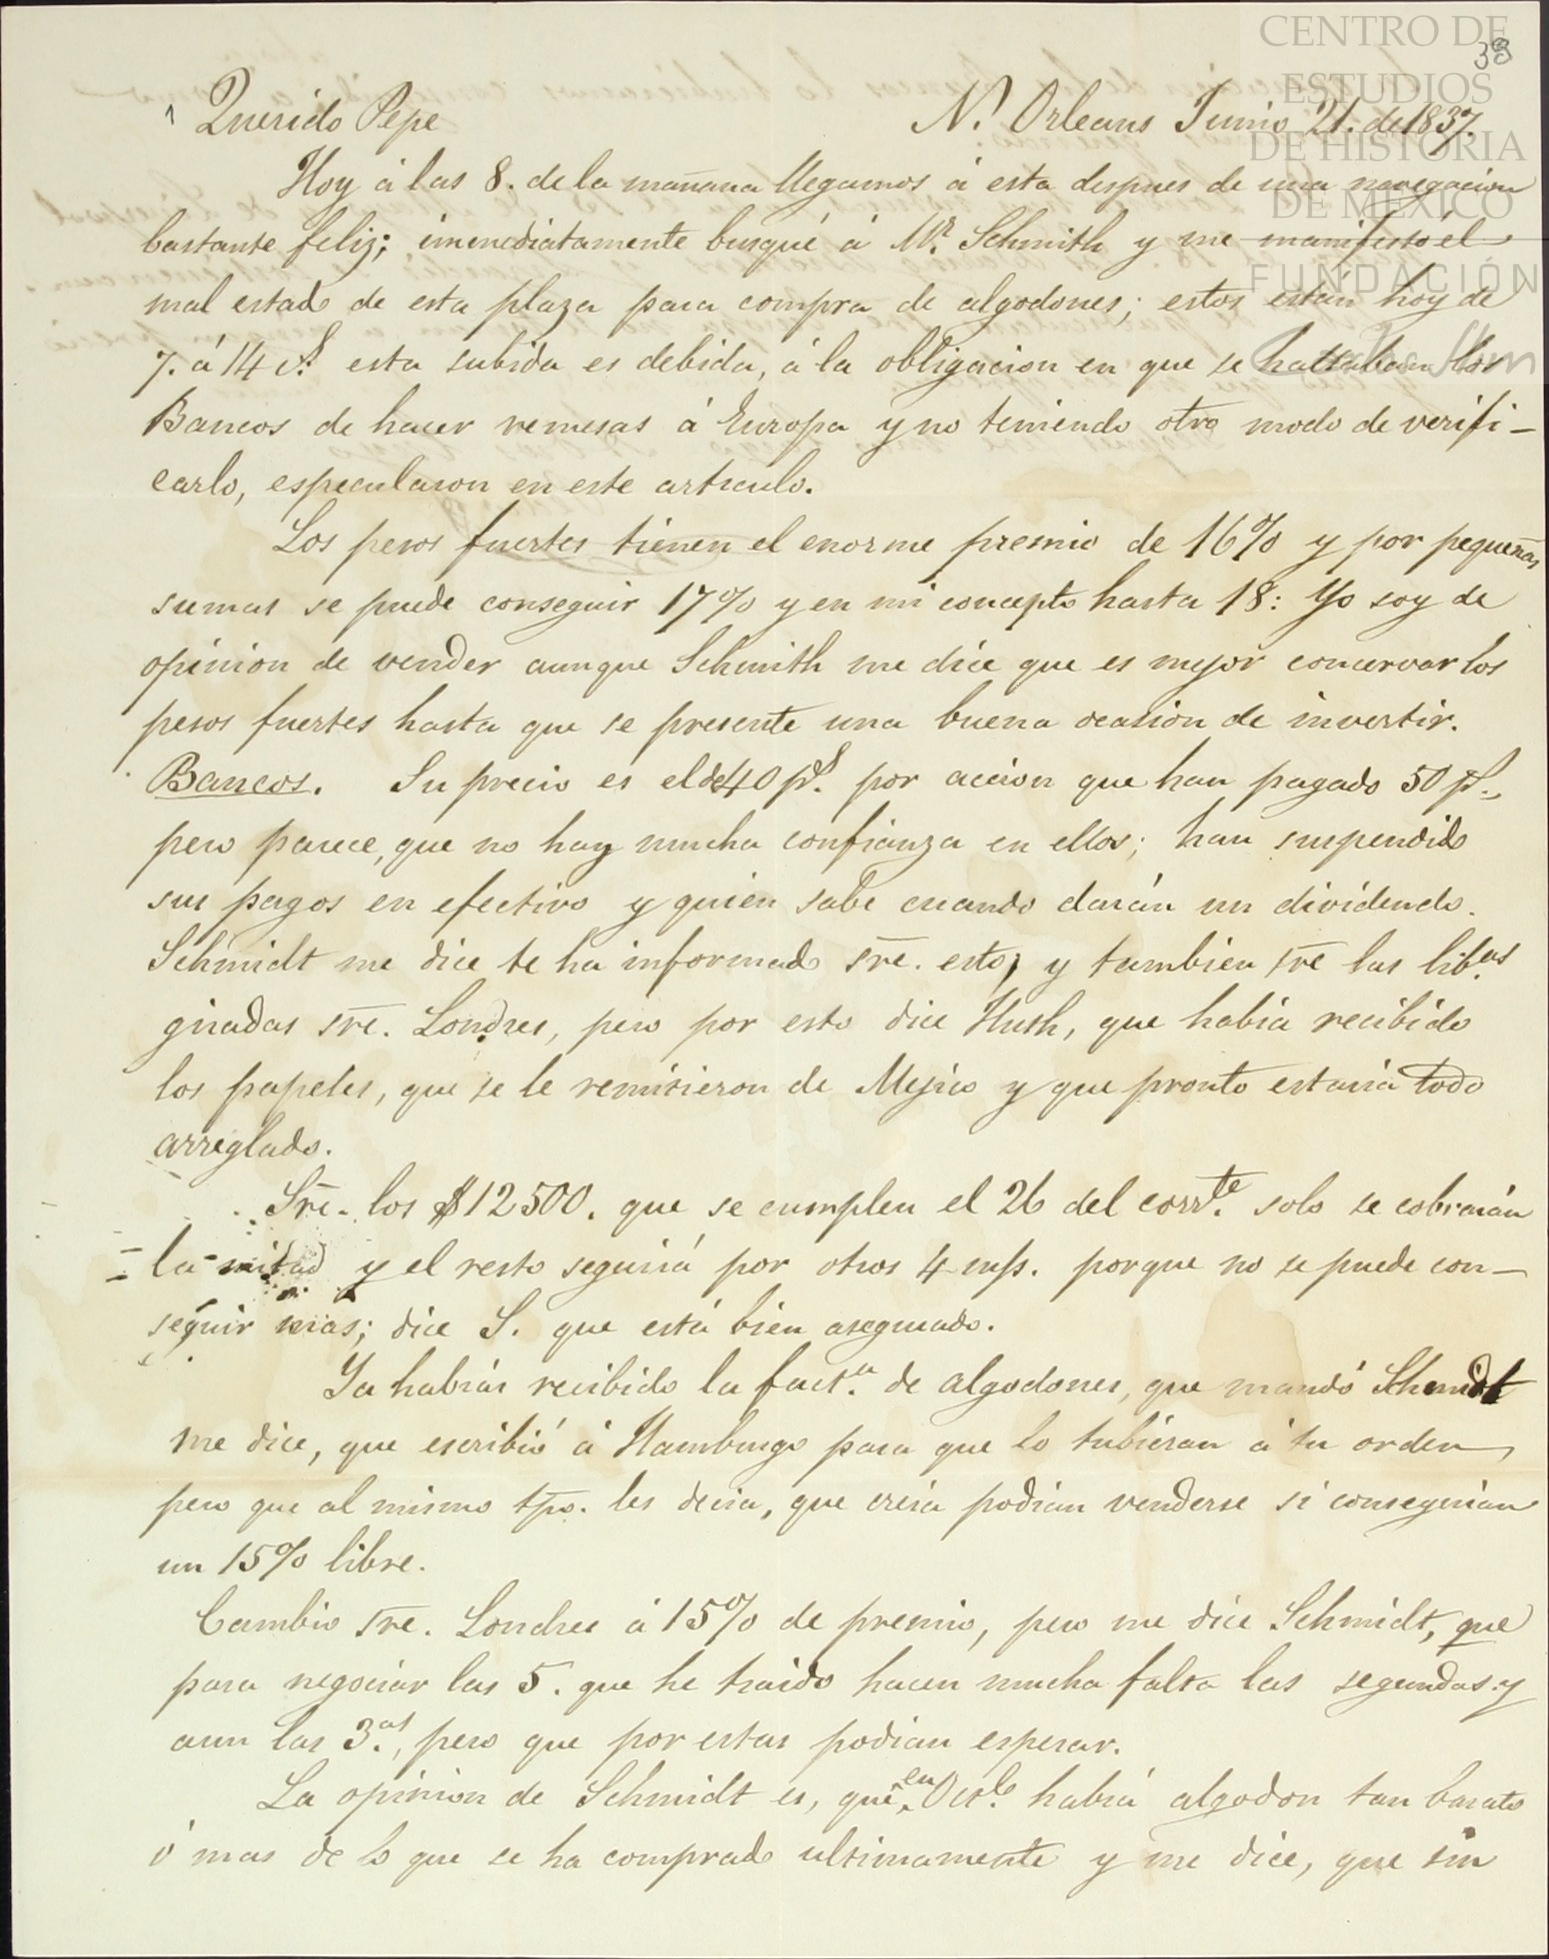 CENTRO DE
ESTUDIOS
DE HISTORIA
DE MÉXICO
FUNDACIÓN
Carlos Slim
33
Querido Pepe N. Orleans Junio 21. de 1837.
Hoy á las 8. de la mañana llegamos á esta despues de una navegacion
bastante feliz; immediatamente busqué á Mr. Schmith y me manifestó el
mal estado de esta plaza para compra de algodones; estos estan hoy de
7. á 14 cs. esta subida es debida, á la obligacion en que se hallaban los
Bancos de hacer remesas á Europa y no teniendo otro modo de verifi-
carlo, especularon en este articulo.
Los pesos fuertes tienen el enorme premio de 16% y por pequeñas
sumas se puede conseguir 17% y en mi concepto hasta 18: Yo soy de
opinion de vender aunque Schmith me dice que es mejor concervar los
pesos fuertes hasta que se presente una buena ocasion de invertir.
Bancos. Su precio es el de 40 ps. por accion que han pagado 50 ps.,
pero parece, que no hay mucha confianza en ellos; han suspendido
sus pagos en efectivo y quien sabe cuando darán un dividendo.
Schmidt me dice te ha informado sre. esto, y tambien sre las libas.
giradas sre. Londres, pero por esto dice Hush, que habia recibido
los papeles, que se le remisieron de Mejico y que pronto estaria todo
arreglado.
Sre. los $12500. que se cumplen el 26 del corrte. solo se cobrarán
la mitad y el resto seguirá por otros 4 mss. porque no se puede con-
seguir mas; dice S. que está bien asegurado.
Ya habrás recibido la facta. de algodones, que mandó Schmidt
me dice, que escribió á Hamburgo para que lo tubieran á tu orden,
pero que al mismo tpo. les decia, que creia podian venderse si conseguian
un 15% libre.
Cambio sre. Londres á 15% de premio, pero me dice Schmidt, que
para negociar las 5. que he traido hacen mucha falta las segundas y
aun las 3.as, pero que por estas podian esperar.
La opinion de Schmidt es, que en Octe. habrá algodon tan barato
ó mas de lo que se ha comprado ultimamente y me dice, que sin